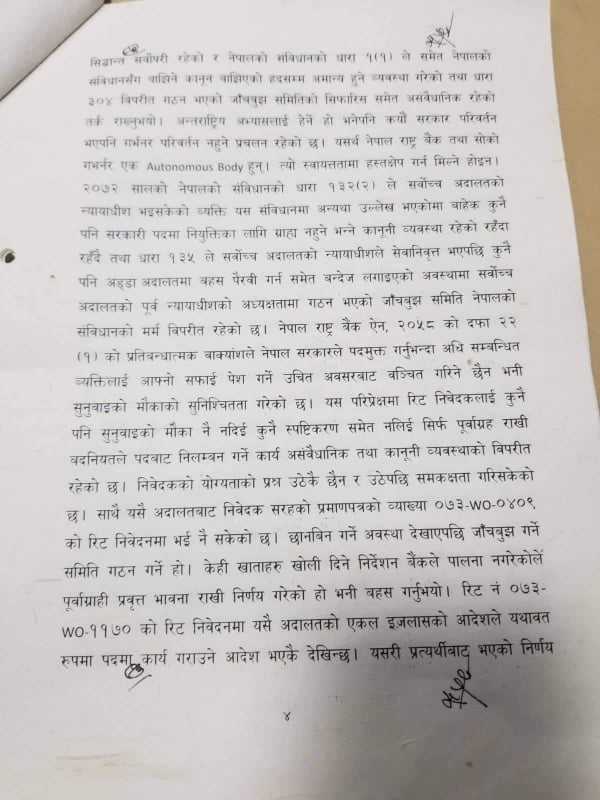 सिद्धान्त सर्वोपरी रहेको र नेपालको संविधानको धारा १(१) ले समेत नेपालको
संविधानसँग बाझिने कानून बाझिएको हदसम्म अमान्य हुने व्यवस्था गरेको तथा धारा
३०४ विपरीत गठन भएको जाँचबुझ समितिको सिफारिस समेत असंवैधानिक रहेको
तर्क राख्नुभयो। अन्तराष्ट्रिय अभ्यासलाई हेर्ने हो भनेपनि कयौं सरकार परिवर्तन
भएपनि गर्भनर परिवर्तन नहुने प्रचलन रहेको छ। यसर्थ नेपाल राष्ट्र बैंक तथा सोको
गभर्नर एक Autonomous Body हुन्। त्यो स्वायत्ततामा हस्तक्षेप गर्न मिल्ने होइन।
२०७२ सालको नेपालको संविधानको धारा १३२(२) ले सर्वोच्च अदालतको
न्यायाधीश भइसकेको व्यक्ति यस संविधानमा अन्यथा उल्लेख भएकोमा बाहेक कुनै
पनि सरकारी पदमा नियुक्तिका लागि ग्राह्य नहुने भन्ने कानूनी व्यवस्था रहेको रहँदा
रहँदै तथा धारा १३५ ले सर्वोच्च अदालतको न्यायाधीशले सेवानिवृत्त भएपछि कुनै
पनि अड्डा अदालतमा बहस पैरवी गर्न समेत बन्देज लगाइएको अवस्थामा सर्वोच्च
अदालतको पूर्व न्यायाधीशको अध्यक्षतामा गठन भएको जाँचबुझ समिति नेपालको
संविधानको मर्म विपरीत रहेको छ। नेपाल राष्ट्र बैंक ऐन, २०५८ को दफा २२
(१) को प्रतिबन्धात्मक वाक्यांशले नेपाल सरकारले पदमुक्त गर्नुभन्दा अघि सम्बन्धित
व्यक्तिलाई आफ्नो सफाई पेश गर्ने उचित अवसरबाट वञ्चित गरिने छैन भनी
सुनुवाइको मौकाको सुनिश्चितता गरेको छ। यस परिप्रेक्षमा रिट निवेदकलाई कुनै
पनि सुनुवाइको मौका नै नदिई कुनै स्पष्टिकरण समेत नलिई सिर्फ पूर्वाग्रह राखी
बदनियतले पदबाट निलम्बन गर्ने कार्य असंवैधानिक तथा कानूनी व्यवस्थाको विपरीत
रहेको छ। निवेदकको योग्यताको प्रश्न उठेकै छैन र उठेपछि समकक्षता गरिसकेको
छ। साथै यसै अदालतबाट निवेदक सरहको प्रमाणपत्रको व्याख्या ०७३-WO-०४०९
को रिट निवेदनमा भई नै सकेको छ। छानबिन गर्ने अवस्था देखाएपछि जाँचबुझ गर्ने
समिति गठन गर्ने हो। केही खाताहरु खोली दिने निर्देशन बैंकले पालना नगरेकोले
पूर्वाग्राही प्रवृत्त भावना राखी निर्णय गरेको हो भनी बहस गर्नुभयो। रिट नं ०७३-
WO-११७० को रिट निवेदनमा यसै अदालतको एकल इजलासको आदेशले यथावत
रुपमा पदमा कार्य गराउने आदेश भएकै देखिन्छ। यसरी प्रत्यर्थीबाट भएको निर्णय
४